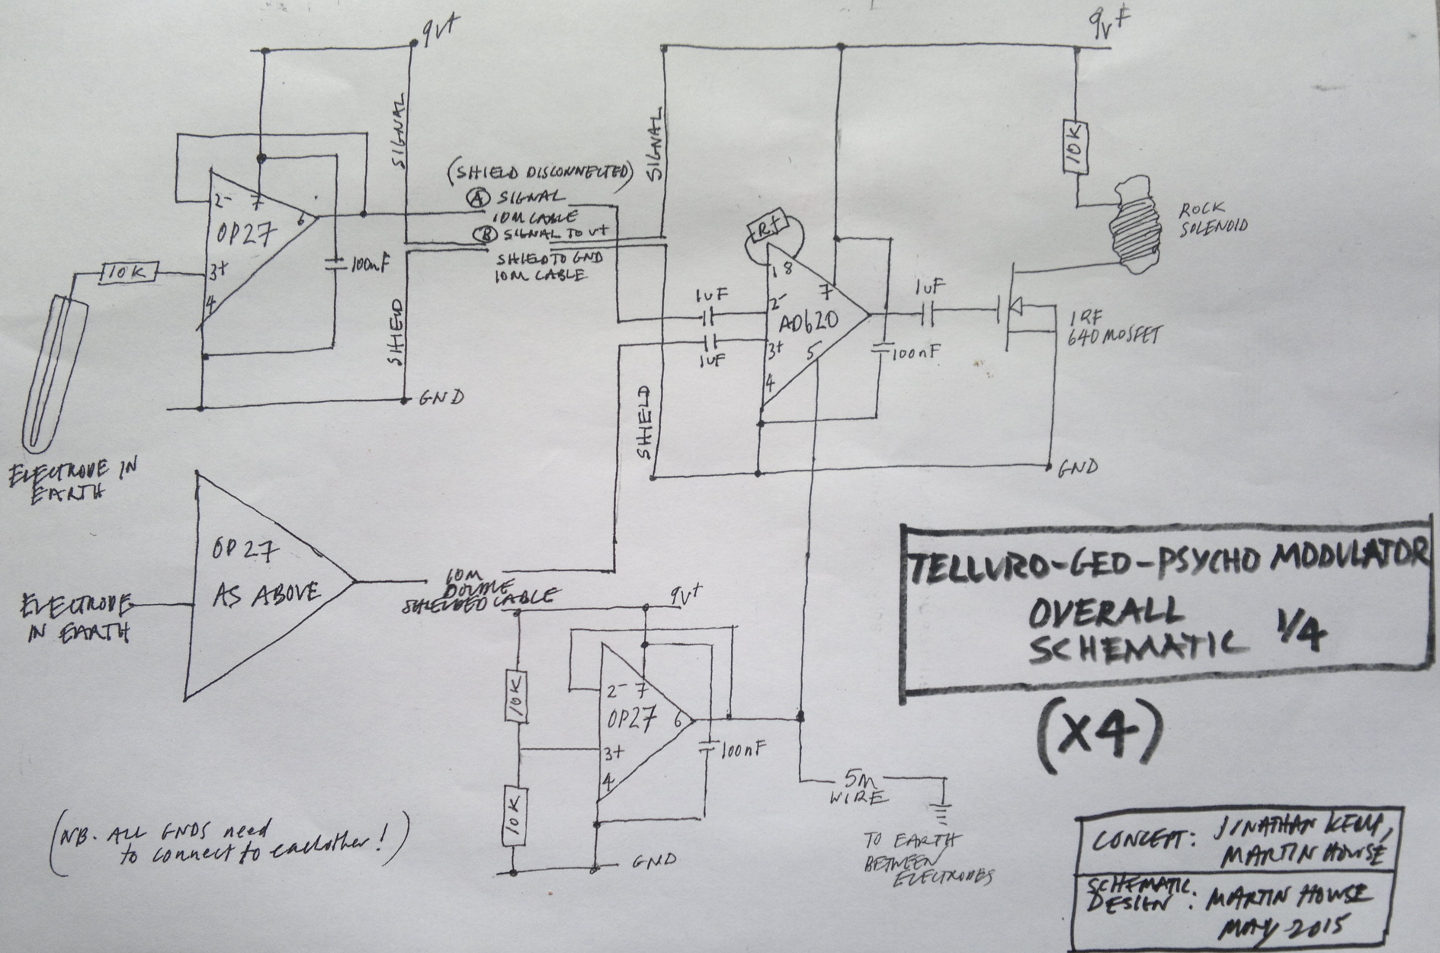 9V+
9V+
SIGNAL
SIGNAL
10K
(SHIELD DISCONNECTED)
A SIGNAL
10M CABLE
B SIGNAL TO V+
SHIELD TO GND
10M CABLE
ROCK
SOLENOID
2-
7
6
OP27
3+
4
10K
100nF
SHIELD
GND
ELECTRODE IN
EARTH
Rf
1 8
1uF
2-
7
AD620
3+
5
4
1uF
1uF
100nF
IRF
640 MOSFET
SHIELD
GND
OP27
AS ABOVE
ELECTRODE
IN EARTH
10M
DOUBLE
SHIELDED CABLE
9V+
10K
2-
7
OP27
6
3+
4
100nF
10K
GND
5M
WIRE
TO EARTH
BETWEEN
ELECTRODES
(NB. ALL GNDS need
to connect to eachother!)
TELLURO-GEO-PSYCHO MODULATOR
OVERALL
SCHEMATIC 1/4
(X4)
CONCEPT: JONATHAN KEMP,
MARTIN HOWSE
SCHEMATIC
DESIGN: MARTIN HOWSE
MAY 2015